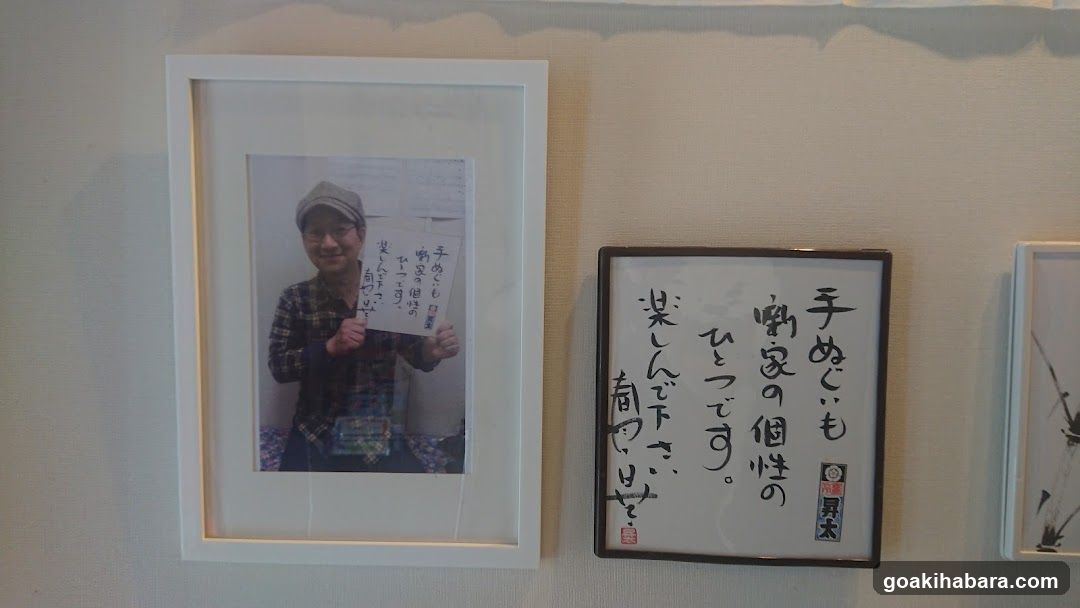 手ぬぐいも
噺家の個性の
ひとつです。
楽しんで下さい
手ぬぐいも
噺家の個性の
ひとつです。
楽しんで下さい
昇太
goakihabara.com